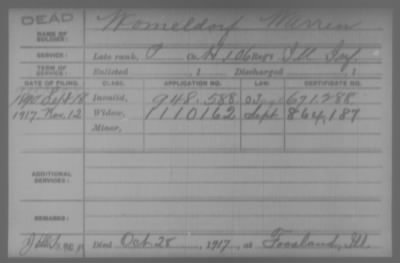 DEAD
NAME OF SOLDIER: Womeldorf Warren
SERVICE: Late rank, P Co. H, 106 Reg't Ill Inf.
TERM OF SERVICE: Enlisted , 1 Discharged , 1
DATE OF FILING. CLASS. APPLICATION NO. LAW. CERTIFICATE NO.
1890 Sept 18 Invalid, 948.588 671.288
1917. Nov. 12 Widow, 1110162 Sept 864,187
Minor,
ADDITIONAL SERVICES:
REMARKS:
Died Oct. 28, 1917, at Foosland, Ill.